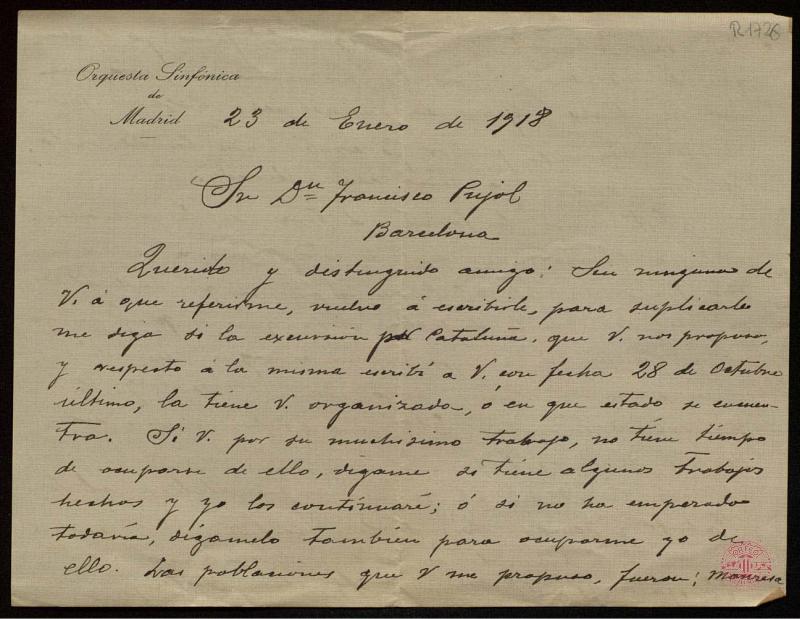 R.1726
Orquesta Sinfónica
de
Madrid
23 de Enero de 1918
Sr Dn Francisco Pujol
Barcelona
Querido y distinguido amigo: Sin ninguna de
V. á que referirme, vuelvo á escribirle, para suplicarle
me diga si la excursión por Cataluña, que V. nos propuso,
y respecto á la misma escribí a V. con fecha 28 de Octubre
último, la tiene V. organizada, ó en que estado se encuen-
tra. Si V. por su muchisimo trabajo, no tiene tiempo
de ocuparse de ello, digame si tiene algunos trabajos
hechos y yo los continuaré; ó si no ha empezado
todavía, dígamelo tambien para ocuparme yo de
ello. Las poblaciones que V me propuso, fueron; Manresa